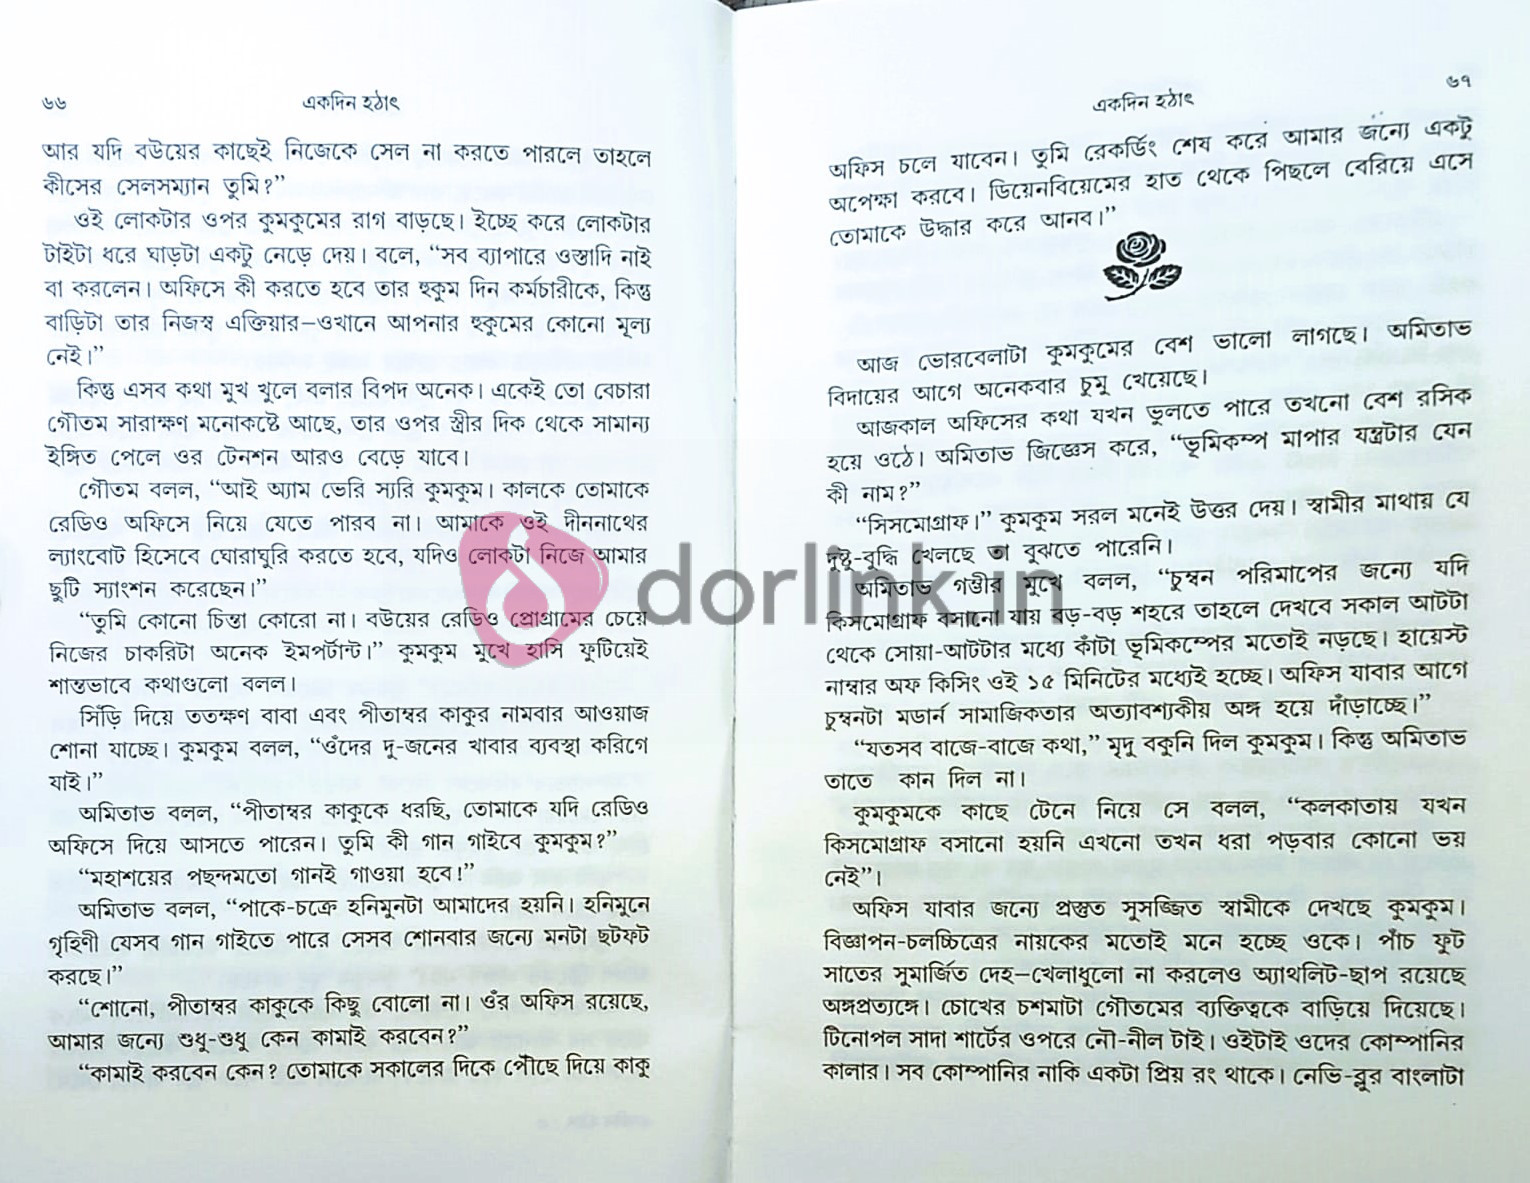 ৬৬
একদিন হঠাৎ
আর যদি বউয়ের কাছেই নিজেকে সেল না করতে পারলে তাহলে
কীসের সেলসম্যান তুমি?”
ওই লোকটার ওপর কুমকুমের রাগ বাড়ছে। ইচ্ছে করে লোকটার
টাইটা ধরে ঘাড়টা একটু নেড়ে দেয়। বলে, “সব ব্যাপারে ওস্তাদি নাই
বা করলেন। অফিসে কী করতে হবে তার হুকুম দিন কর্মচারীকে, কিন্তু
বাড়িটা তার নিজস্ব এক্তিয়ার—ওখানে আপনার হুকুমের কোনো মূল্য
নেই।”
কিন্তু এসব কথা মুখ খুলে বলার বিপদ অনেক। একেই তো বেচারা
গৌতম সারাক্ষণ মনোকষ্টে আছে, তার ওপর স্ত্রীর দিক থেকে সামান্য
ইঙ্গিত পেলে ওর টেনশন আরও বেড়ে যাবে।
গৌতম বলল, “আই অ্যাম ভেরি স্যরি কুমকুম। কালকে তোমাকে
রেডিও অফিসে নিয়ে যেতে পারব না। আমাকে ওই দীননাথের
ল্যাংবোট হিসেবে ঘোরাঘুরি করতে হবে, যদিও লোকটা নিজে আমার
ছুটি স্যাংশন করেছেন।”
“তুমি কোনো চিন্তা কোরো না। বউয়ের রেডিও প্রোগ্রামের চেয়ে
নিজের চাকরিটা অনেক ইমপর্টান্ট।” কুমকুম মুখে হাসি ফুটিয়েই
শান্তভাবে কথাগুলো বলল।
সিঁড়ি দিয়ে ততক্ষণ বাবা এবং পীতাম্বর কাকুর নামবার আওয়াজ
শোনা যাচ্ছে। কুমকুম বলল, “ওঁদের দু-জনের খাবার ব্যবস্থা করিগে
যাই।”
অমিতাভ বলল, “পীতাম্বর কাকুকে ধরছি, তোমাকে যদি রেডিও
অফিসে দিয়ে আসতে পারেন। তুমি কী গান গাইবে কুমকুম?”
“মহাশয়ের পছন্দমতো গানই গাওয়া হবে!”
অমিতাভ বলল, “পাকে-চক্রে হনিমুনটা আমাদের হয়নি। হনিমুনে
গৃহিণী যেসব গান গাইতে পারে সেসব শোনবার জন্যে মনটা ছটফট
করছে।”
“শোনো, পীতাম্বর কাকুকে কিছু বোলো না। ওঁর অফিস রয়েছে,
আমার জন্যে শুধু-শুধু কেন কামাই করবেন?”
“কামাই করবেন কেন? তোমাকে সকালের দিকে পৌঁছে দিয়ে কাকু
৬৭
একদিন হঠাৎ
অফিস চলে যাবেন। তুমি রেকর্ডিং শেষ করে আমার জন্যে একটু
অপেক্ষা করবে। ডিয়েনবিয়েমের হাত থেকে পিছলে বেরিয়ে এসে
তোমাকে উদ্ধার করে আনব।”
আজ ভোরবেলাটা কুমকুমের বেশ ভালো লাগছে। অমিতাভ
বিদায়ের আগে অনেকবার চুমু খেয়েছে।
আজকাল অফিসের কথা যখন ভুলতে পারে তখনো বেশ রসিক
হয়ে ওঠে। অমিতাভ জিজ্ঞেস করে, “ভূমিকম্প মাপার যন্ত্রটার যেন
কী নাম?”
“সিসমোগ্রাফ।” কুমকুম সরল মনেই উত্তর দেয়। স্বামীর মাথায় যে
দুষ্টু-বুদ্ধি খেলছে তা বুঝতে পারেনি।
অমিতাভ গম্ভীর মুখে বলল, “চুম্বন পরিমাপের জন্যে যদি
কিসমোগ্রাফ বসানো যায় বড়-বড় শহরে তাহলে দেখবে সকাল আটটা
থেকে সোয়া-আটটার মধ্যে কাঁটা ভূমিকম্পের মতোই নড়ছে। হায়েস্ট
নাম্বার অফ কিসিং ওই ১৫ মিনিটের মধ্যেই হচ্ছে। অফিস যাবার আগে
চুম্বনটা মডার্ন সামাজিকতার অত্যাবশ্যকীয় অঙ্গ হয়ে দাঁড়াচ্ছে।”
“যতসব বাজে-বাজে কথা,” মৃদু বকুনি দিল কুমকুম। কিন্তু অমিতাভ
তাতে কান দিল না।
কুমকুমকে কাছে টেনে নিয়ে সে বলল, “কলকাতায় যখন
কিসমোগ্রাফ বসানো হয়নি এখনো তখন ধরা পড়বার কোনো ভয়
নেই”।
অফিস যাবার জন্যে প্রস্তুত সুসজ্জিত স্বামীকে দেখছে কুমকুম।
বিজ্ঞাপন-চলচ্চিত্রের নায়কের মতোই মনে হচ্ছে ওকে। পাঁচ ফুট
সাতের সুমার্জিত দেহ—খেলাধুলো না করলেও অ্যাথলিট-ছাপ রয়েছে
অঙ্গপ্রত্যঙ্গে। চোখের চশমাটা গৌতমের ব্যক্তিত্বকে বাড়িয়ে দিয়েছে।
টিনোপল সাদা শার্টের ওপরে নৌ-নীল টাই। ওইটাই ওদের কোম্পানির
কালার। সব কোম্পানির নাকি একটা প্রিয় রং থাকে। নেভি-ব্লুর বাংলাটা
dorlink.in